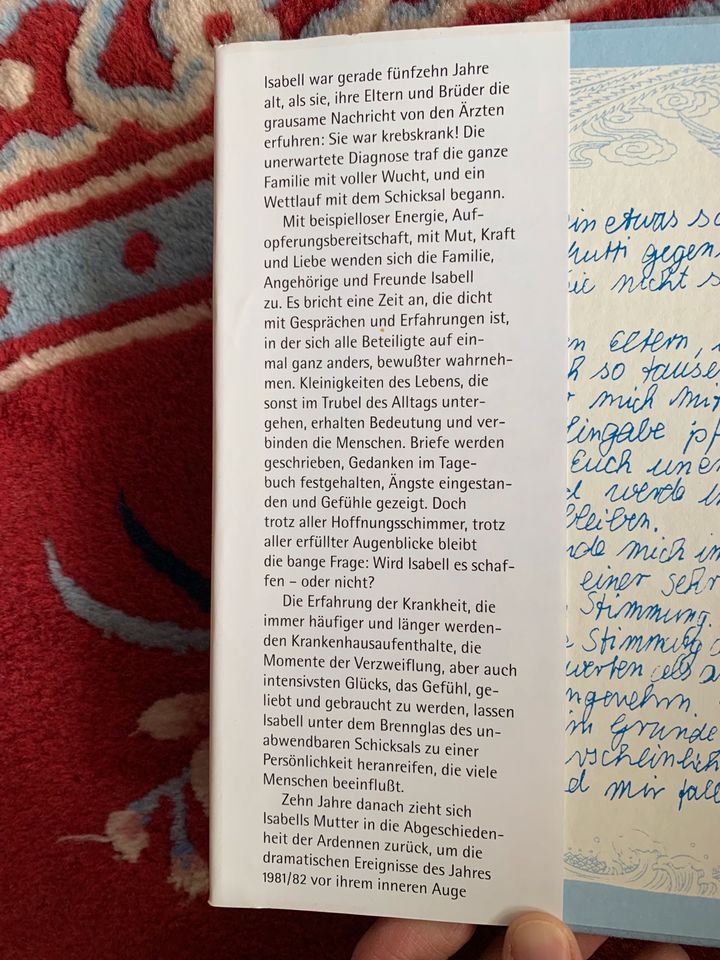 Isabell war gerade fünfzehn Jahre
alt, als sie, ihre Eltern und Brüder die
grausame Nachricht von den Ärzten
erfuhren: Sie war krebskrank! Die
unerwartete Diagnose traf die ganze
Familie mit voller Wucht, und ein
Wettlauf mit dem Schicksal begann.
Mit beispielloser Energie, Auf-
opferungsbereitschaft, mit Mut, Kraft
und Liebe wenden sich die Familie,
Angehörige und Freunde Isabell
zu. Es bricht eine Zeit an, die dicht
mit Gesprächen und Erfahrungen ist,
in der sich alle Beteiligte auf ein-
mal ganz anders, bewußter wahrneh-
men. Kleinigkeiten des Lebens, die
sonst im Trubel des Alltags unter-
gehen, erhalten Bedeutung und ver-
binden die Menschen. Briefe werden
geschrieben, Gedanken im Tage-
buch festgehalten, Ängste eingestan-
den und Gefühle gezeigt. Doch
trotz aller Hoffnungsschimmer, trotz
aller erfüllter Augenblicke bleibt
die bange Frage: Wird Isabell es schaf-
fen – oder nicht?
Die Erfahrung der Krankheit, die
immer häufiger und länger werden-
den Krankenhausaufenthalte, die
Momente der Verzweiflung, aber auch
intensivsten Glücks, das Gefühl, ge-
liebt und gebraucht zu werden, lassen
Isabell unter dem Brennglas des un-
abwendbaren Schicksals zu einer
Persönlichkeit heranreifen, die viele
Menschen beeinflußt.
Zehn Jahre danach zieht sich
Isabells Mutter in die Abgeschieden-
heit der Ardennen zurück, um die
dramatischen Ereignisse des Jahres
1981/82 vor ihrem inneren Auge
ein etwas
Mutti
nicht
Eltern,
so
mich
Euch
werde
bleiben.
mich
einer sehr
Stimmung.
Stimmung
als
Grunde
mir